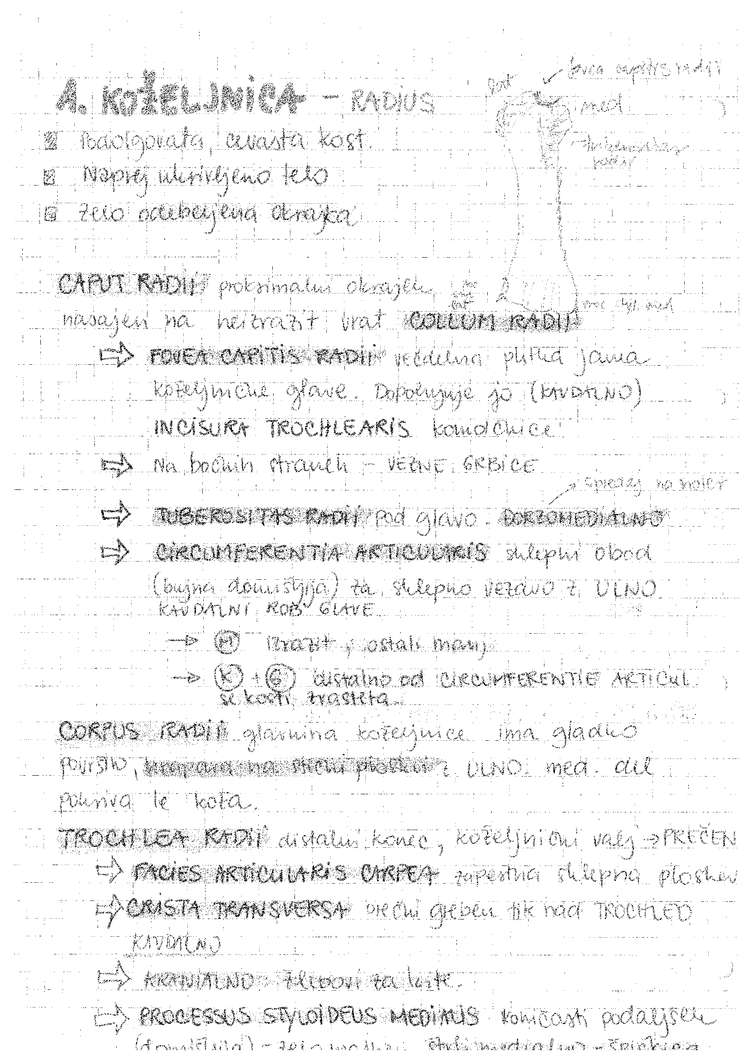 A. KOŽELJNICA - RADIUS
fovea capitis radii
lat
med
Podolgovata, cevasta kost.
Naprej ukrivljeno telo
Zelo odebeljena okrajka
CAPUT RADII proksimalni okrajek,
nasajen na neizrazit vrat COLLUM RADII
⇨ FOVEA CAPITIS RADII večdelna plitka jama
koželjnične glave. Dopolnjuje jo (KAVDALNO)
INCISURA TROCHLEARIS komolčnice
⇨ Na bočnih straneh - VEZNE GRBICE
spredaj na
⇨ TUBEROSITAS RADII pod glavo. DORZOMEDIALNO
⇨ CIRCUMFERENTIA ARTICULARIS sklepni obod
(bujna domišljija) za sklepno vezavo z ULNO.
KAVDALNI ROB GLAVE
→ (M) izrazit, ostali manj
→ (K) + (G) distalno od CIRCUMFERENTIE ARTICUL.
se kosti zrasteta.
CORPUS RADII glavnina koželjnice ima gladko
površino, hrapava na stični ploskvi z ULNO. med. del
pokriva le koža.
TROCHLEA RADII distalni konec, koželjnični valj → PREČEN
⇨ FACIES ARTICULARIS CARPEA zapestna sklepna ploskev
⇨ CRISTA TRANSVERSA prečni greben tik nad TROCHLEO
KAVDALNO
⇨ KRANIALNO žlebovi za kite.
⇨ PROCESSUS STYLOIDEUS MEDIALIS koničasti podaljšek
(domišljija) -